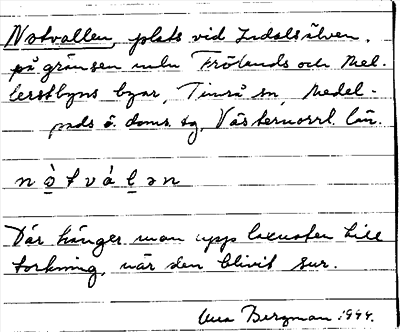 Notvallen, plats vid Indalsälven,
på gränsen mln Frölands och Mel-
lerstbyns byar, Timrå sn, Medel-
pads ö. doms. tg, Västernorrl. län.
n ò̱ t v á ḻ ə n
Där hänger man upp laxnoten till
torkning, när den blivit sur.
Bergman 1944.